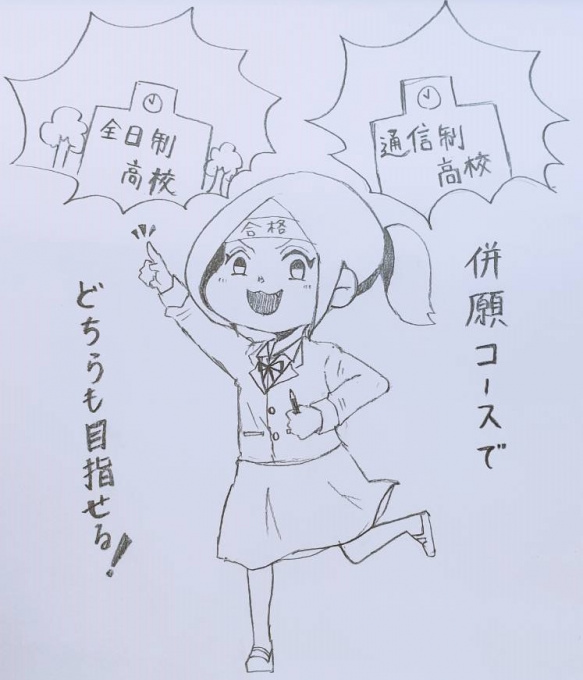 全日制
高校
通信制
高校
合格
併願コースで
どちらも目指せる!